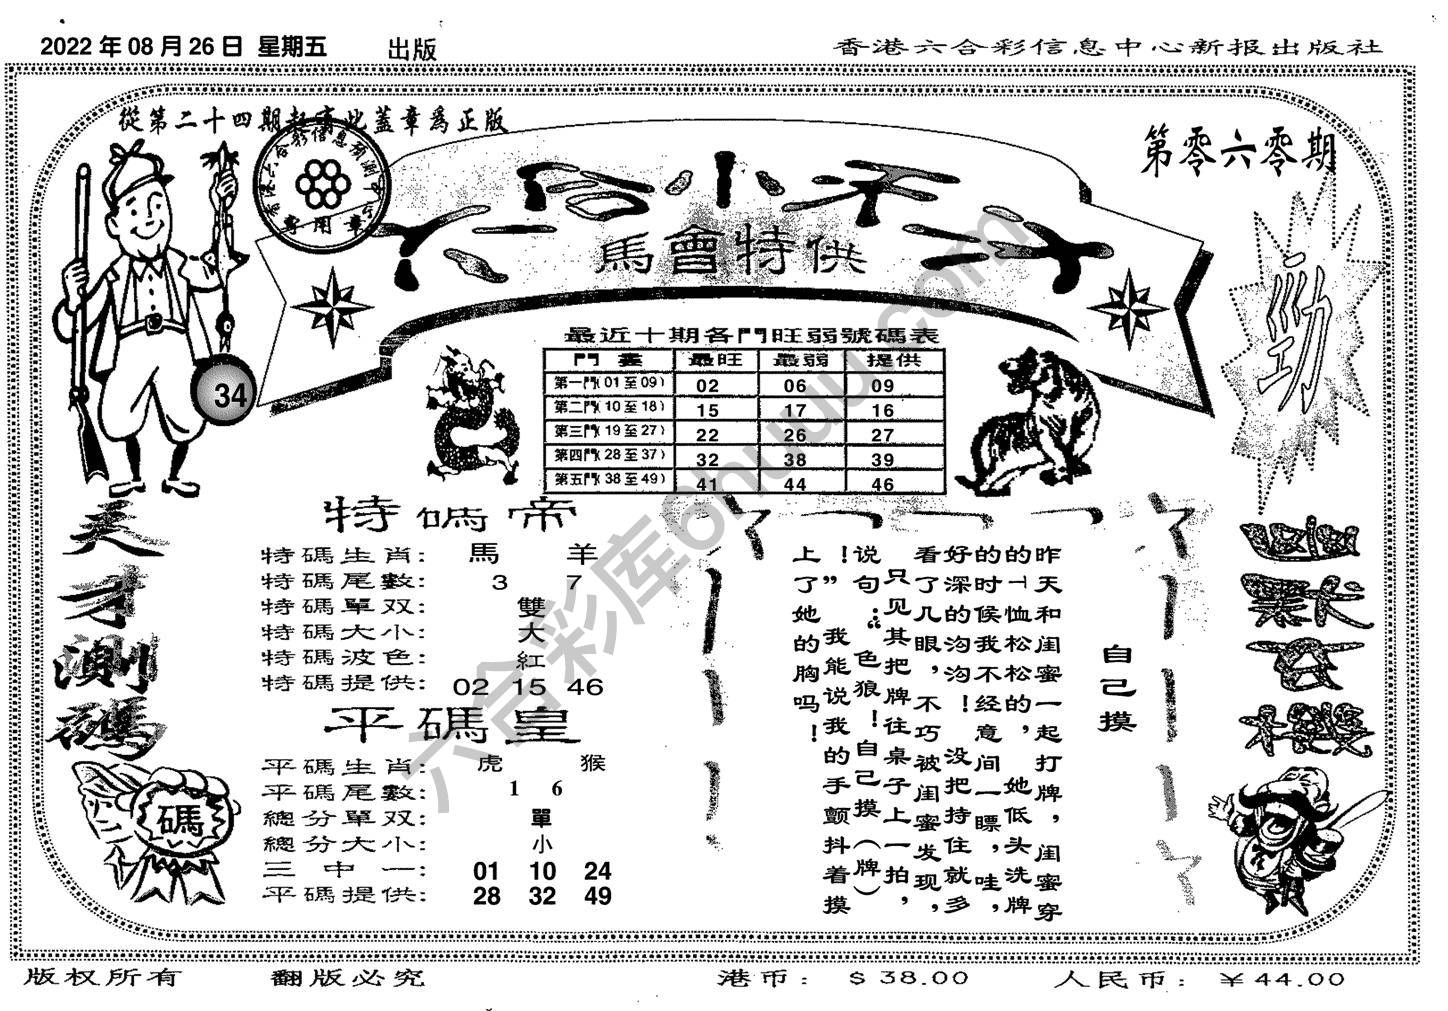 2022年08月26日 星期五 出版
香港六合彩信息中心新报出版社
從第二十四期起有此蓋章爲正版
香港六合彩信息預測中心
專用章
第零六零期
馬會特供
勁
34
最近十期各門旺弱號碼表
門類 最旺 最弱 提供
第一門(01至09) 02 06 09
第二門(10至18) 15 17 16
第三門(19至27) 22 26 27
第四門(28至37) 32 38 39
第五門(38至49) 41 44 46
天才測碼
碼
特碼帝
特碼生肖: 馬 羊
特碼尾數: 3 7
特碼單双: 雙
特碼大小: 大
特碼波色: 紅
特碼提供: 02 15 46
平碼皇
平碼生肖: 虎 猴
平碼尾數: 1 6
總分單双: 單
總分大小: 小
三中一: 01 10 24
平碼提供: 28 32 49
自己摸
昨天和闺蜜一起打牌，闺蜜穿
的T恤松松的，她低头洗牌
的时候我不经意间一瞟，哇，
好深的沟沟！没把持住就多
看了几眼，不巧被闺蜜发现，
只见其把牌往桌子上一拍，
说句：“色狼！自己摸（牌）
！”我能说我的手颤抖着摸
上了她的胸吗！
六合彩库6huuu.com
版权所有 翻版必究 港币：$38.00 人民币：￥44.00